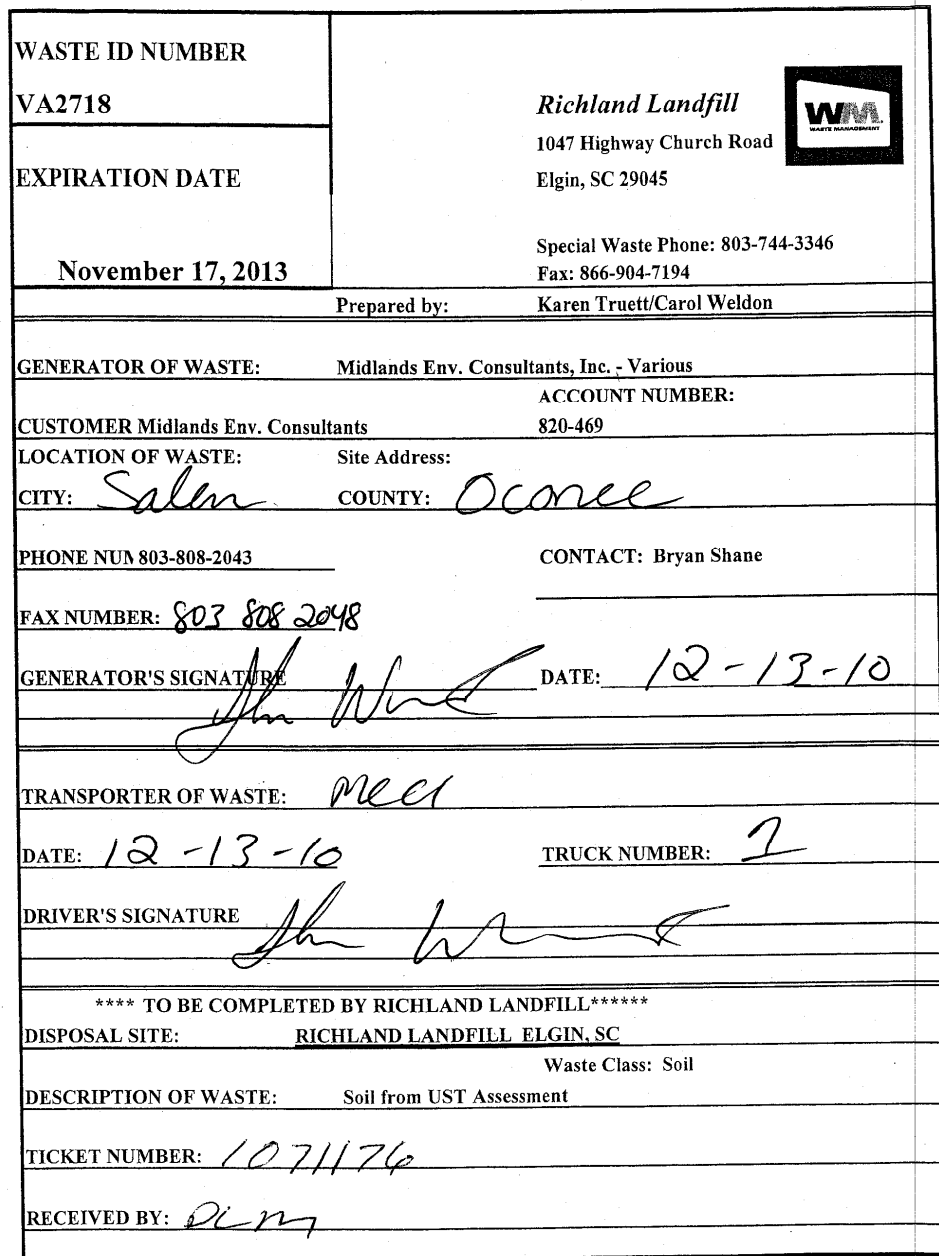 WASTE ID NUMBER
VA2718
EXPIRATION DATE
November 17, 2013
Richland Landfill
1047 Highway Church Road
Elgin, SC 29045
WM
WASTE MANAGEMENT
Special Waste Phone: 803-744-3346
Fax: 866-904-7194
Prepared by: Karen Truett/Carol Weldon
GENERATOR OF WASTE: Midlands Env. Consultants, Inc. - Various
ACCOUNT NUMBER:
CUSTOMER Midlands Env. Consultants 820-469
LOCATION OF WASTE: Site Address:
CITY: Salem COUNTY: Oconee
PHONE NUM 803-808-2043 CONTACT: Bryan Shane
FAX NUMBER: 803 808 2048
GENERATOR'S SIGNATURE DATE: 12-13-10
TRANSPORTER OF WASTE: MECI
DATE: 12-13-10 TRUCK NUMBER: 1
DRIVER'S SIGNATURE
**** TO BE COMPLETED BY RICHLAND LANDFILL******
DISPOSAL SITE: RICHLAND LANDFILL ELGIN, SC
Waste Class: Soil
DESCRIPTION OF WASTE: Soil from UST Assessment
TICKET NUMBER: 1071176
RECEIVED BY: